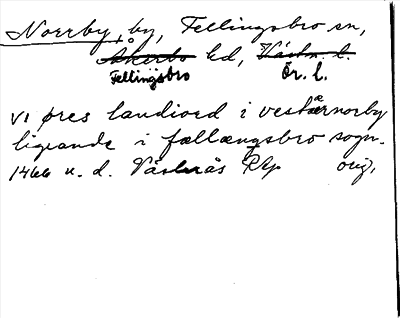 Norrby, by, Fellingsbro sn,
Åkerbo hd, Västm. l.
Fellingsbro Ör. l.
VI øres landiord i vestærnorby
liggande i fællængsbro sogn.
1466 u. d. Västerås Rp orig,